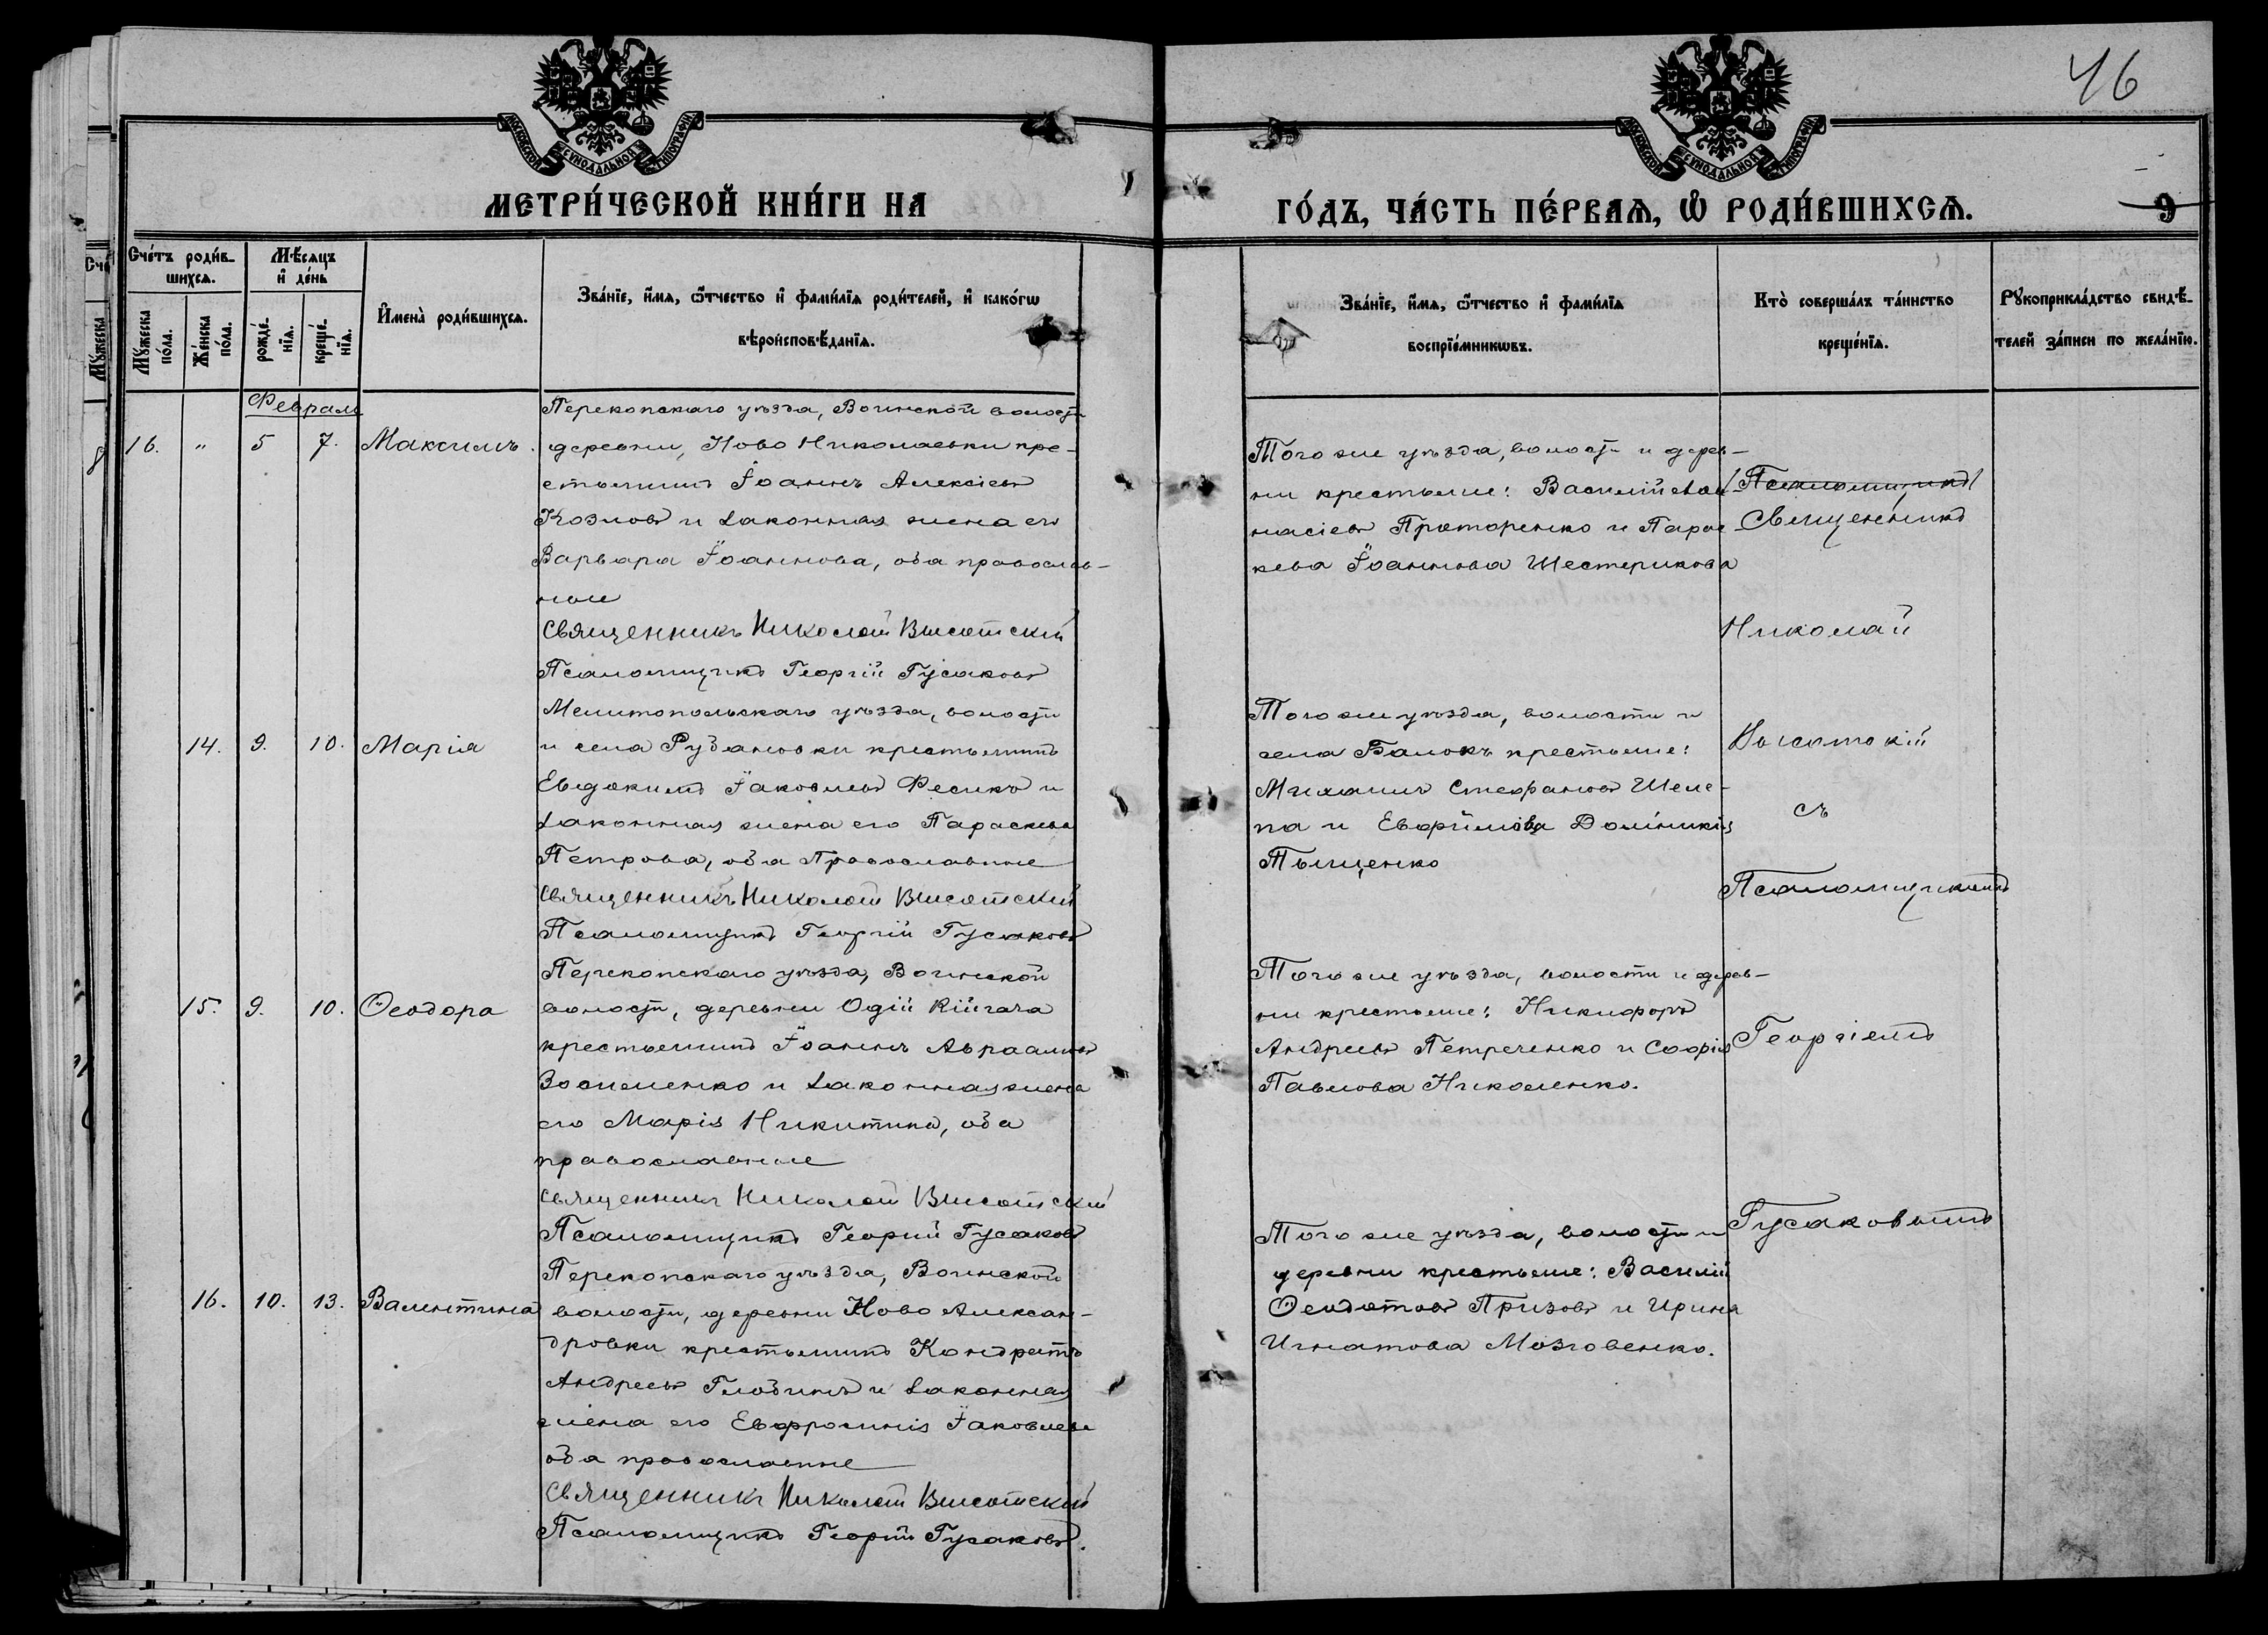 46
МОСКОВСКОЙ СѴНОДАЛЬНОЙ ТИПОГРАФІИ
МОСКОВСКОЙ СѴНОДАЛЬНОЙ ТИПОГРАФІИ
МЕТРИ́ЧЕСКОЙ КНИ́ГИ НА
ГО́ДЪ, ЧА́СТЬ ПЕ́РВАѦ, Ѽ РОДИ́ВШИХСѦ.
9
Сче́тъ роди́в-
шихсѧ.
Мꙋ́жеска по́ла.
Же́нска по́ла.
Мѣ́сяцъ
и҆ де́нь
рожде́нїѧ.
креще́нїѧ.
И҆мена̀ роди́вшихсѧ.
Зва́нїе, и҆́мѧ, ѻ҆́тчество и҆ фами́лїѧ роди́телей, и҆ како́гѡ
вѣроисповѣ́данїѧ.
Зва́нїе, и҆́мѧ, ѻ҆́тчество и҆ фами́лїѧ
воспрїе́мникѡвъ.
Кто̀ соверша́лъ та́инство
креще́нїѧ.
Рꙋкоприкла́дство свидѣ́-
телей за́писи по жела́нїю.
Февраль
16. " 5 7. Максимъ.
Перекопскаго уѣзда, Воинской волости
деревни, Ново Николаевки кре-
стьянинъ Іоаннъ Алексіевъ
Козловъ и законная жена его
Варвара Іоаннова, оба православ-
ные
Священникъ Николай Высотскій
Псаломщикъ Георгій Гусаковъ
Того же уѣзда, волости и дерев-
ни крестьяне: Василій Афа-
насіевъ Проторенко и Парас-
кева Іоаннова Шестерикова
Псаломщикъ
Священникъ
Николай
Высотскій
съ
Псаломщикомъ
Георгіемъ
Гусаковымъ
14. 9. 10. Марія
Мелитопольскаго уѣзда, волости
и села Рубановки крестьянинъ
Евдокимъ Іаковлевъ Фесикъ и
законная жена его Параскева
Петрова, оба Православные
Священникъ Николай Высотскій
Псаломщикъ Георгій Гусаковъ
Того же уѣзда, волости и
села Балокъ крестьяне:
Михаилъ Стефановъ Шеле-
па и Домникія
Тыщенко
15. 9. 10. Ѳеодора
Перекопскаго уѣзда, Воинской
волости, деревни
крестьянинъ Іоаннъ Авраамовъ
Василенко и законная жена
его Марія Никитина, оба
православные
Священникъ Николай Высотскій
Псаломщикъ Георгій Гусаковъ
Того же уѣзда, волости и дерев-
ни крестьяне: Никифоръ
Андреевъ Петреченко и Софія
Павлова Николенко.
16. 10. 13. Валентина
Перекопскаго уѣзда, Воинской
волости, деревни Ново Алексан-
дровки крестьянинъ Кондратъ
Андреевъ Глобинъ и законная
жена его Евфросинія Іаковлева
оба православные
Священникъ Николай Высотскій
Псаломщикъ Георгій Гусаковъ.
Того же уѣзда, волости и
деревни крестьяне: Василій
Ѳеодотовъ Призовъ и Ирина
Игнатова Мозговенко.